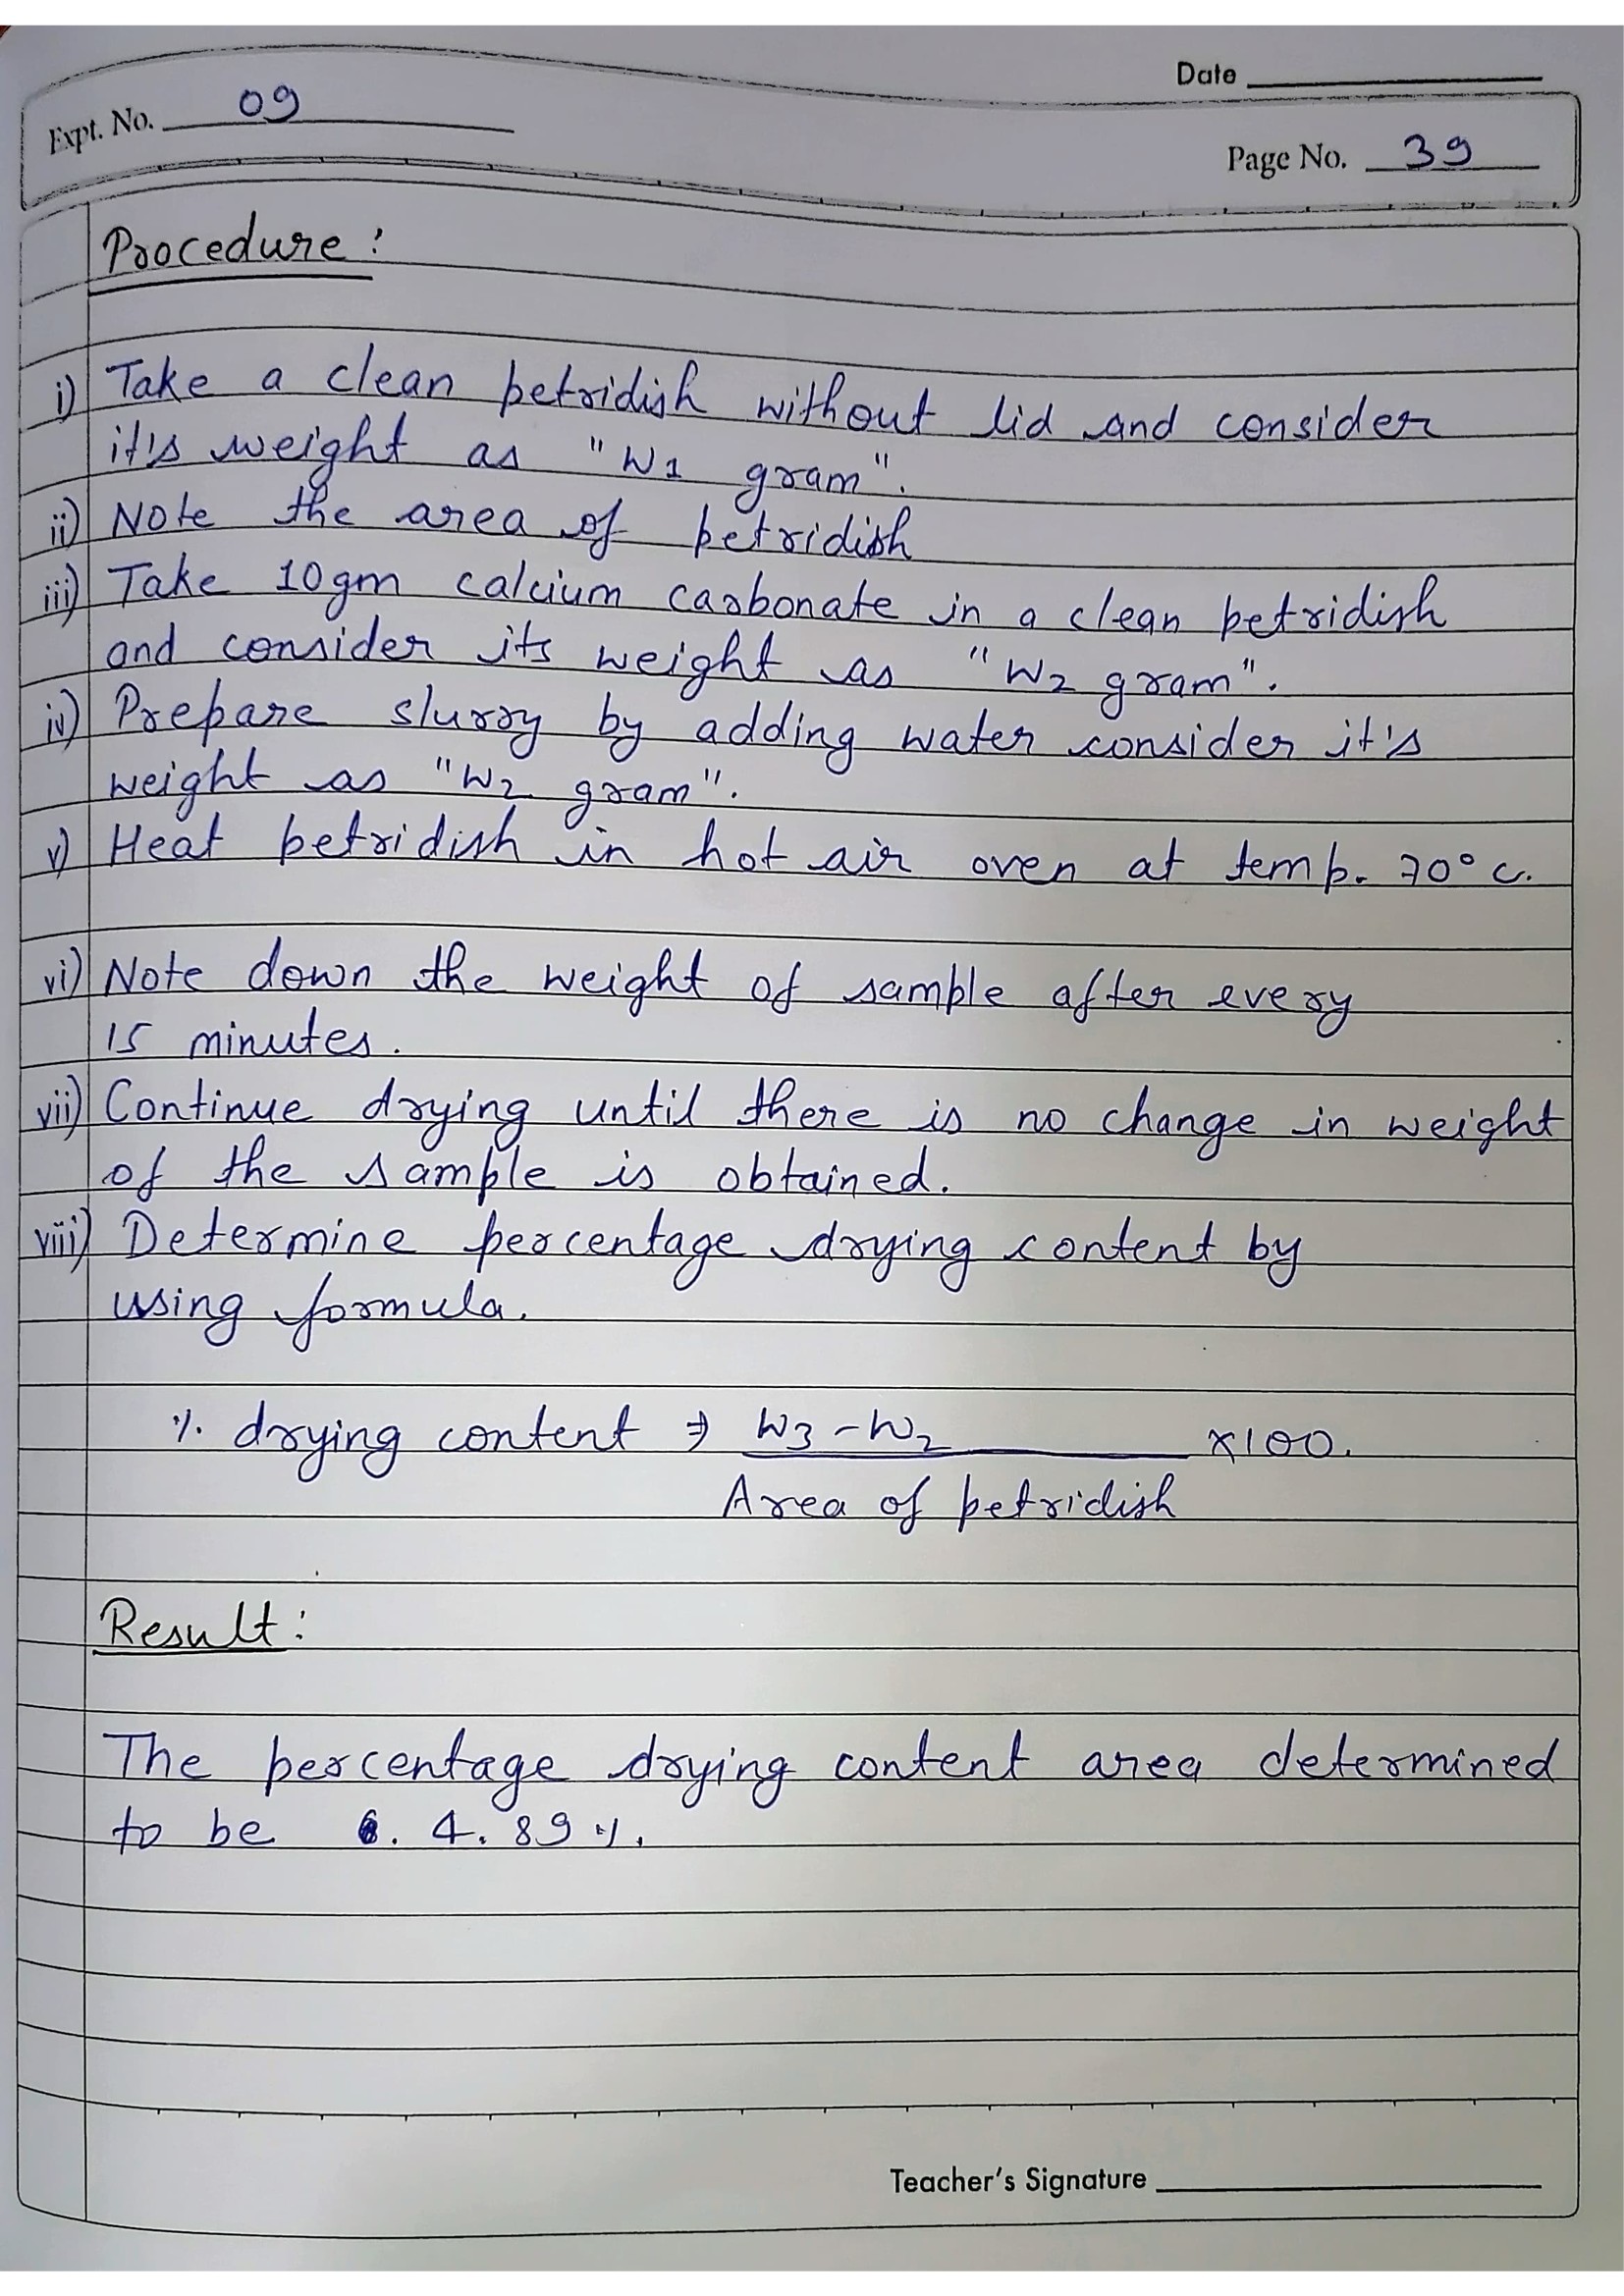 Date
Expt. No. 09
Page No. 39
Procedure :
i) Take a clean petridish without lid and consider
it's weight as "W1 gram".
ii) Note the area of petridish
iii) Take 10gm calcium carbonate in a clean petridish
and consider its weight as "W2 gram".
iv) Prepare slurry by adding water consider it's
weight as "W2 gram".
v) Heat petridish in hot air oven at temp. 70°c.
vi) Note down the weight of sample after every
15 minutes.
vii) Continue drying until there is no change in weight
of the sample is obtained.
viii) Determine percentage drying content by
using formula.
% drying content ⇒ W3 - W2 ×100.
Area of petridish
Result :
The percentage drying content area determined
to be 4.89 %.
Teacher's Signature